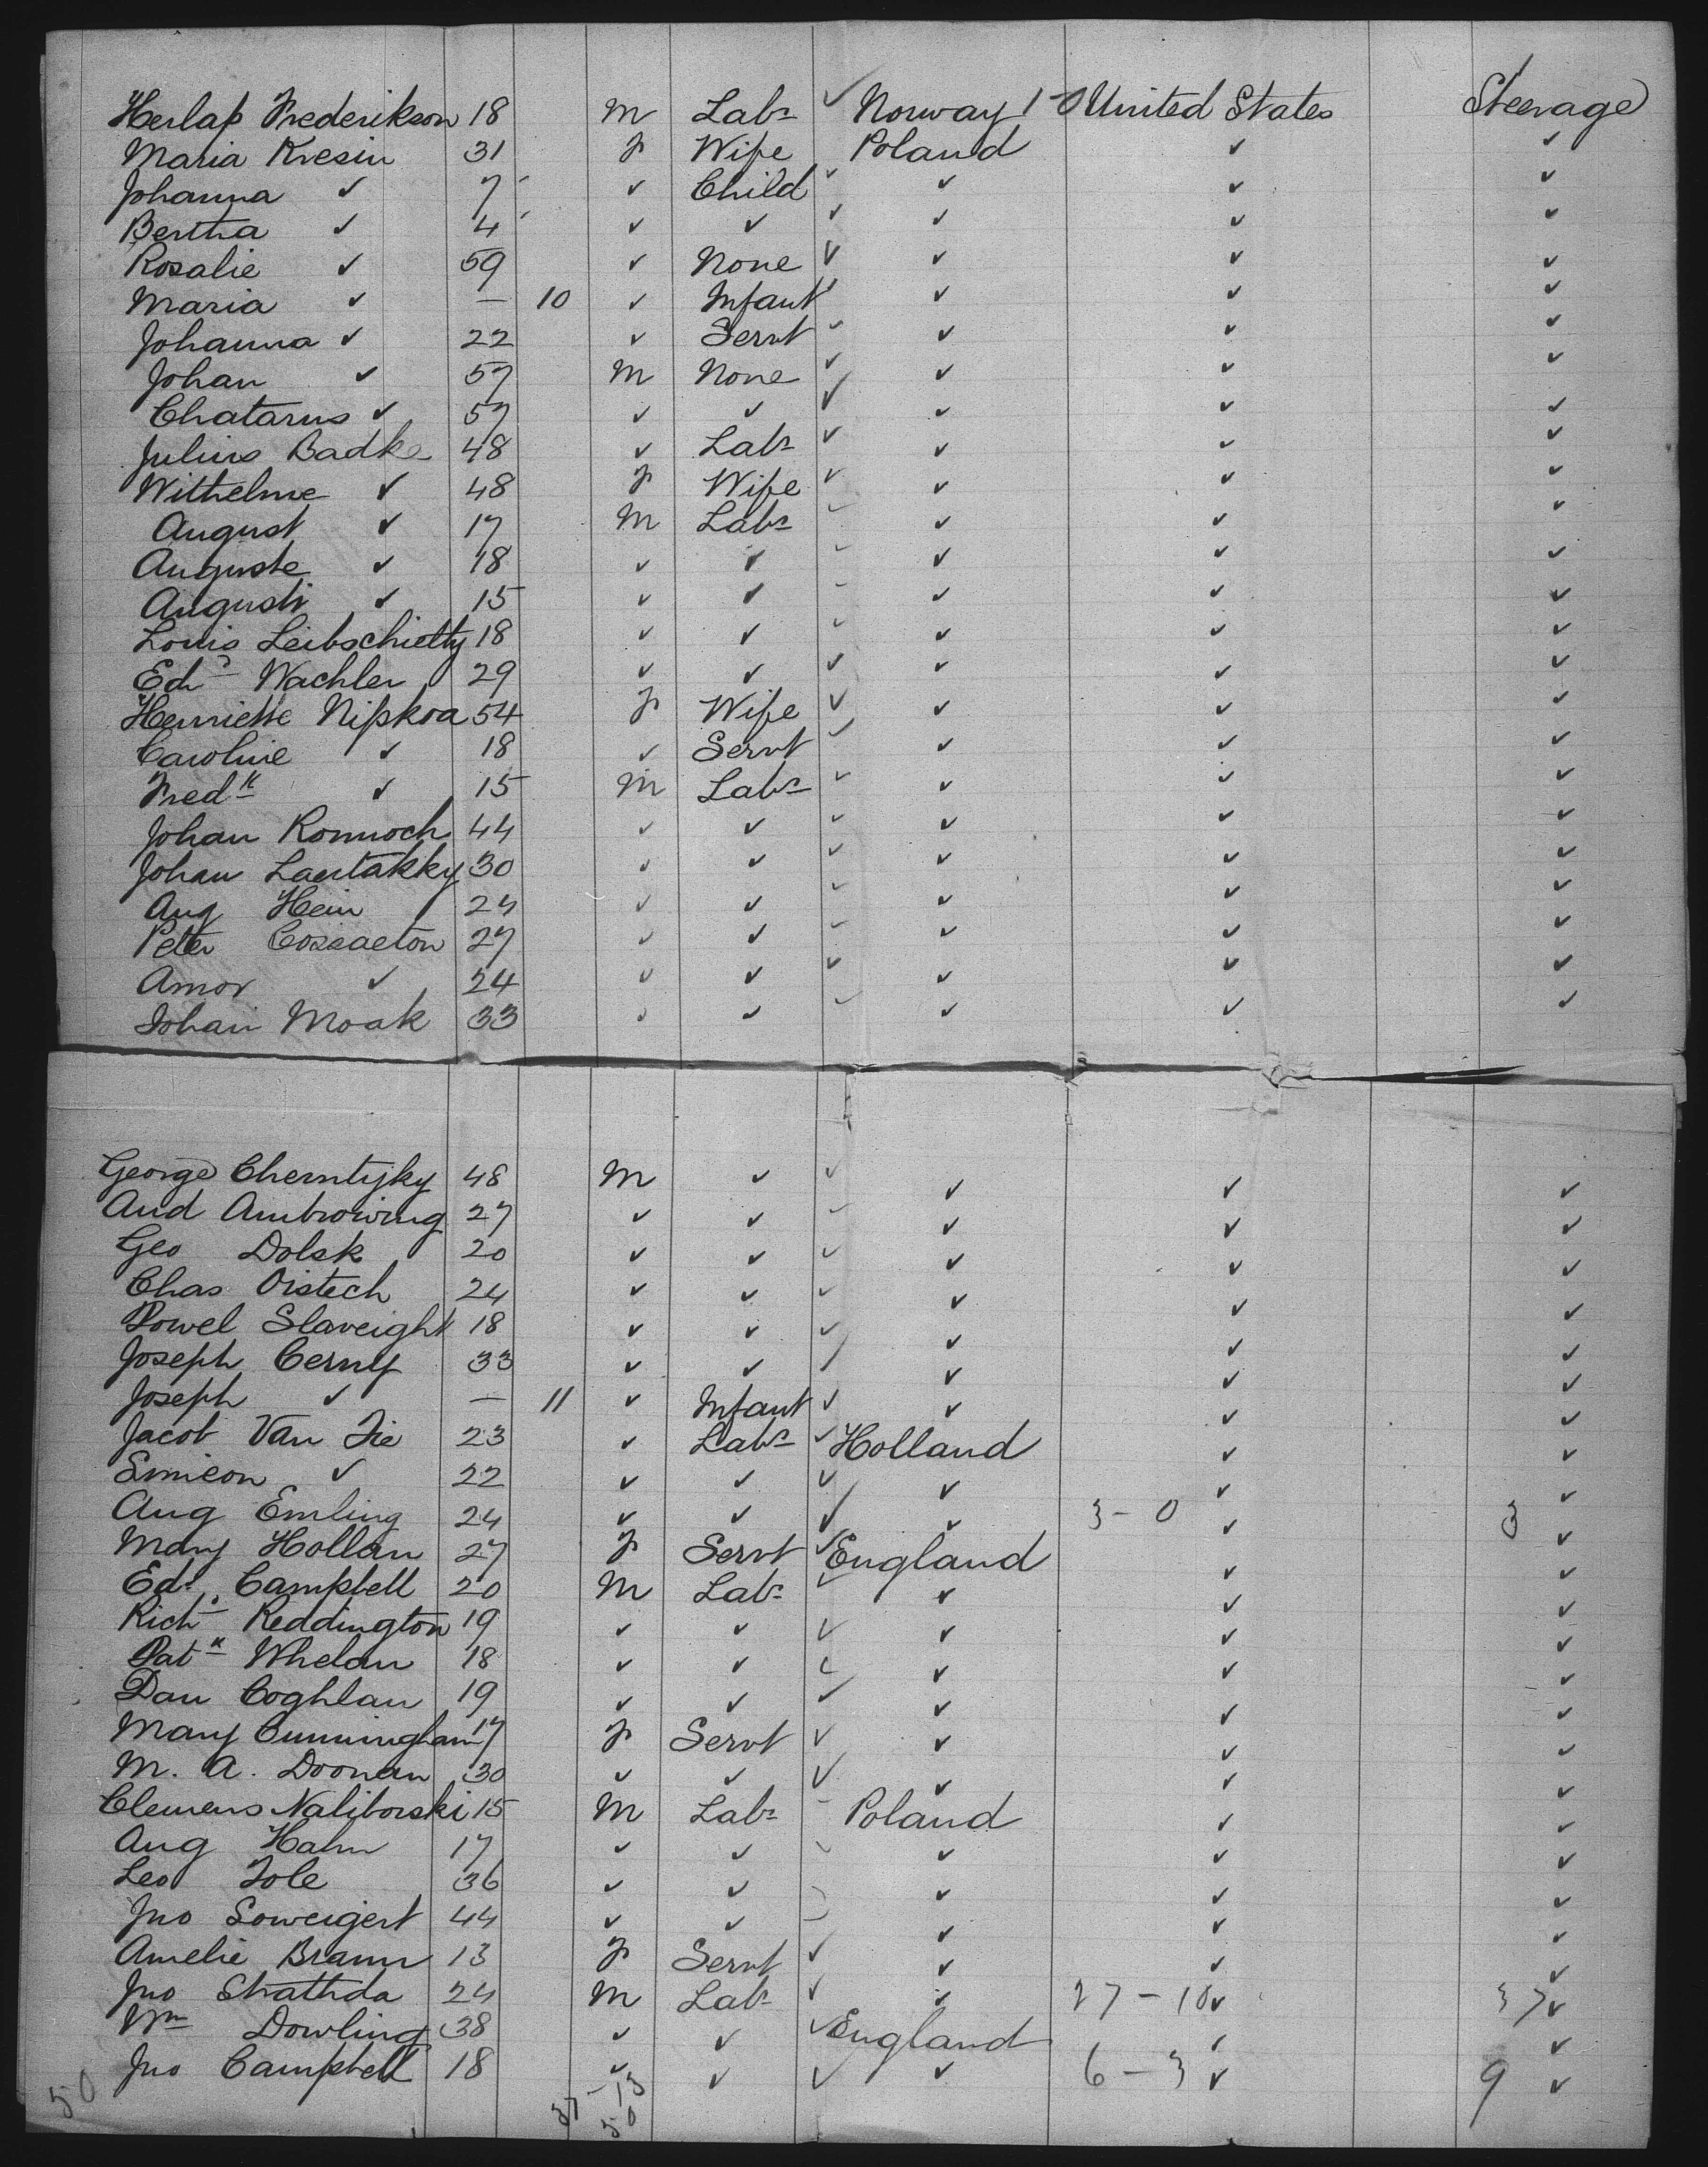 Herlap Frederikson 18 M Labr ✓ Norway 1-0 United States Steerage
Maria Kresin 31 F Wife Poland ✓ ✓
Johanna ✓ 7 ✓ Child ✓ ✓ ✓ ✓
Bertha ✓ 4 ✓ ✓ ✓ ✓ ✓ ✓
Rosalie ✓ 59 ✓ None ✓ ✓ ✓ ✓
Maria ✓ — 10 ✓ Infant ✓ ✓ ✓
Johanna ✓ 22 ✓ Servt ✓ ✓ ✓ ✓
Johan ✓ 57 M None ✓ ✓ ✓ ✓
Chatarus ✓ 57 ✓ ✓ ✓ ✓ ✓ ✓
Julius Badke 48 ✓ Labr ✓ ✓ ✓ ✓
Withelme ✓ 48 F Wife ✓ ✓ ✓ ✓
August ✓ 17 M Labr ✓ ✓ ✓ ✓
Auguste ✓ 18 ✓ ✓ ✓ ✓ ✓ ✓
Augusti ✓ 15 ✓ ✓ ✓ ✓ ✓ ✓
Louis Leibschietty 18 ✓ ✓ ✓ ✓ ✓ ✓
Edd Wachler 29 ✓ ✓ ✓ ✓ ✓ ✓
Henriette Nipkoa 54 F Wife ✓ ✓ ✓ ✓
Caroline ✓ 18 ✓ Servt ✓ ✓ ✓ ✓
Fredk ✓ 15 M Labr ✓ ✓ ✓ ✓
Johan Romnoch 44 ✓ ✓ ✓ ✓ ✓ ✓
Johan Laertakky 30 ✓ ✓ ✓ ✓ ✓ ✓
Aug Hein 24 ✓ ✓ ✓ ✓ ✓ ✓
Peter 27 ✓ ✓ ✓ ✓ ✓ ✓
Amor ✓ 24 ✓ ✓ ✓ ✓ ✓ ✓
Johan Moak 33 ✓ ✓ ✓ ✓ ✓ ✓
George Cherntyky 48 M ✓ ✓ ✓ ✓ ✓
And Ambrowing 27 ✓ ✓ ✓ ✓ ✓ ✓
Geo Dolsk 20 ✓ ✓ ✓ ✓ ✓ ✓
Chas Oistech 24 ✓ ✓ ✓ ✓ ✓ ✓
Powel Slaveight 18 ✓ ✓ ✓ ✓ ✓ ✓
Joseph Cerny 33 ✓ ✓ ✓ ✓ ✓ ✓
Joseph ✓ — 11 ✓ Infant ✓ ✓ ✓ ✓
Jacob Van Tie 23 ✓ Labr ✓ Holland ✓ ✓
Simieon ✓ 22 ✓ ✓ ✓ ✓ ✓ ✓
Aug Emling 24 ✓ ✓ ✓ ✓ 3-0 ✓ 3 ✓
Mary Hollan 27 F Servt ✓ England ✓ ✓
Edd Campbell 20 M Labr ✓ ✓ ✓ ✓
Richd Reddington 19 ✓ ✓ ✓ ✓ ✓ ✓
Patk Whelan 18 ✓ ✓ ✓ ✓ ✓ ✓
Dan Coghlan 19 ✓ ✓ ✓ ✓ ✓ ✓
Mary Cunningham 17 F Servt ✓ ✓ ✓ ✓
M. A. Doonan 30 ✓ ✓ ✓ ✓ ✓ ✓
Clemens Naliborski 15 M Labr Poland ✓ ✓
Aug Hahn 17 ✓ ✓ ✓ ✓ ✓ ✓
Leo Tole 36 ✓ ✓ ✓ ✓ ✓
Jno Soweigert 44 ✓ ✓ ✓ ✓ ✓
Amelie Braun 13 F Servt ✓ ✓ ✓ ✓
Jno Strathda 24 M Labr ✓ ✓ 27-10 ✓ 37 ✓
Wm Dowling 38 ✓ ✓ ✓ England ✓ ✓
Jno Campbell 18 ✓ ✓ ✓ ✓ 6-3 ✓ 9 ✓
50 37-13
50